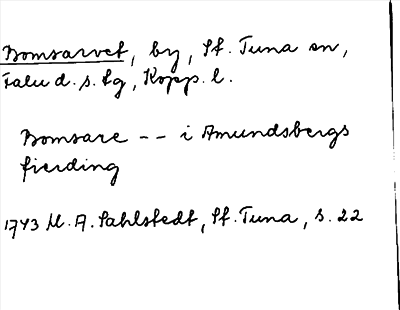 Bomsarvet, by, St. Tuna sn,
Falu d. s. lg, Kopp. l.
Bomsare -- i Amundsbergs
fierding
1743 M. A. Sahlstedt, St. Tuna, s. 22